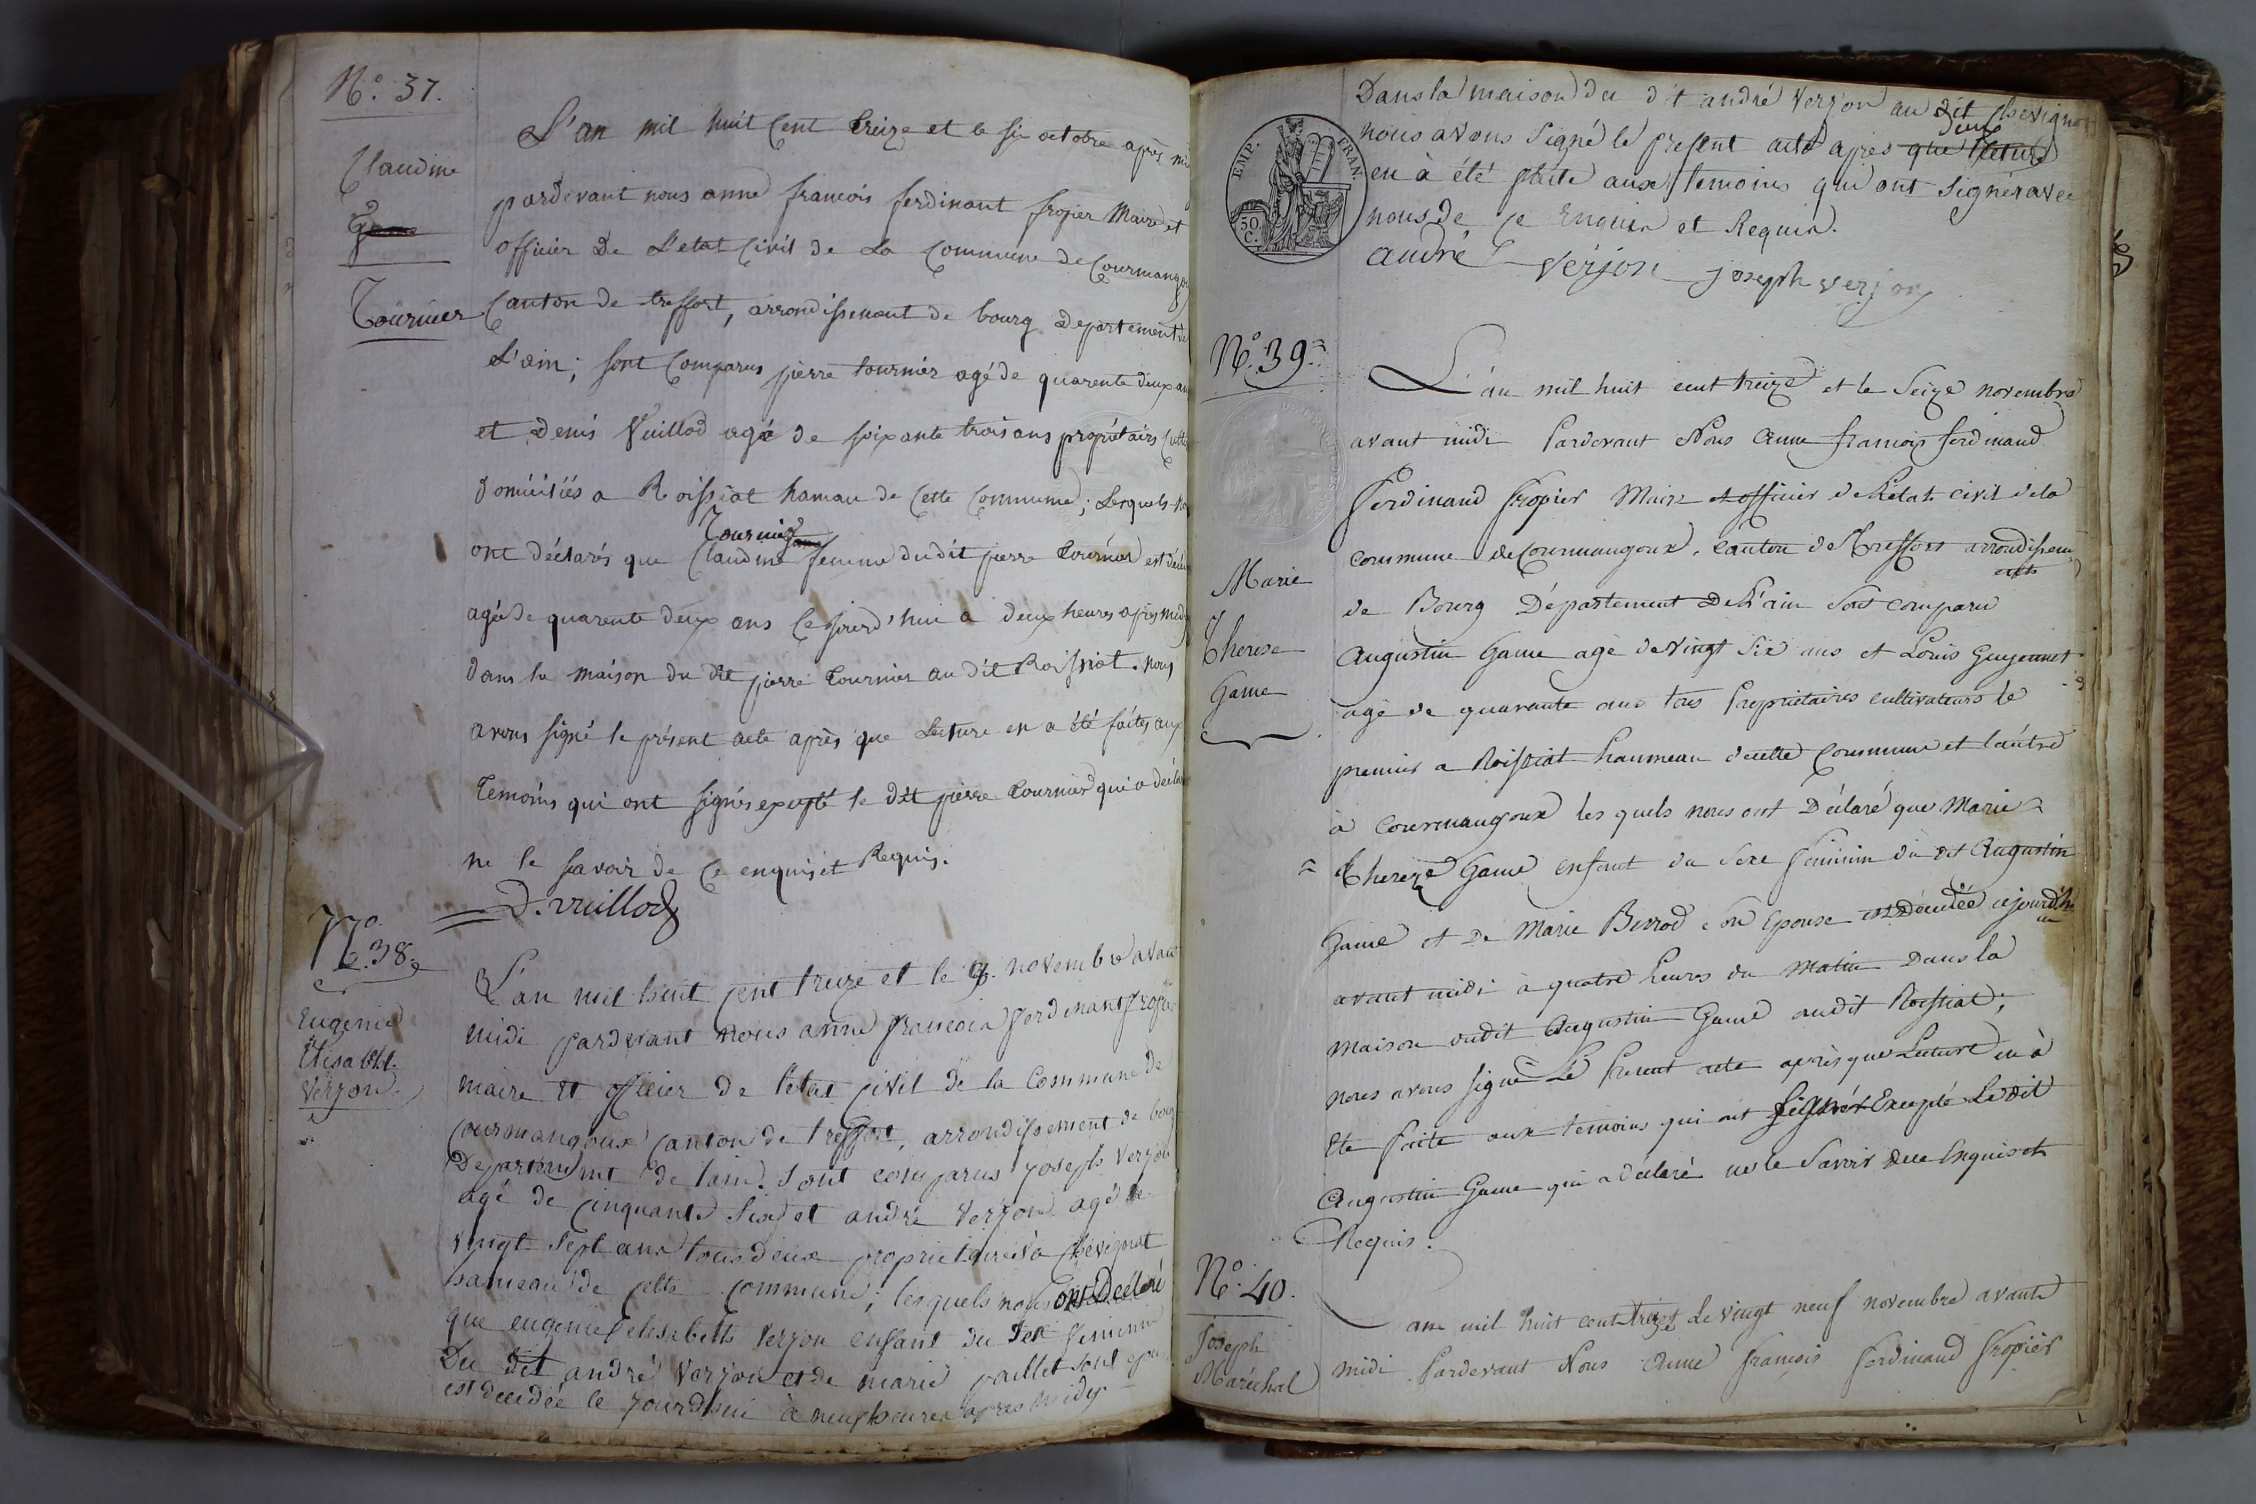 N.º 37.
Claudine
Game
Tournier
L'an mil huit Cent treize et le six octobre après mi
pardevant nous anne francois ferdinant fropier Maire et
officier De L'etat Civil de La Commune de Courmangou
Canton de treffort, arrondissement de bourg departement de
L'ain; sont Comparus pierre tournier agé de quarente deux ans
et Denis Vuillod agé de soixante trois ans proprietairs Cultiv
domiciliés a Roissiat hamau de Cette Commune; Lesquels no
Tournier
ont déclarés que Claudine femme dudit pierre tournier est décéd
agée de quarente deux ans Ce jourd'hui a deux heures après midi
dans la maison du dit pierre tournier au dit Roissiat. nous
avons signé le présent acte après que Lecture en a été faites aux
temoins qui ont signés excepté le dit pierre tournier qui a déclaré
ne le savoir de Ce enquis et Requis.
D. vuillod
Nº. 38.
Eugenie
Elisabht.
Verjon
L'an mil huit cent treize et le 9. novembre avant
midi pardevant nous anne francois ferdinant fropie
maire et officier de l'etat civil de la Commune de
Courmangoux canton de treffort, arrondissement de bourg
Departement de l'ain. Sont comparus joseph Verjon
agé de cinquante six et andré Verjon agé de
vingt sept ans tous deux proprietaires à Chevignat
hameau de cette commune; lesquels nous ont Déclaré
que eugenie elisabeth Verjon enfant du sex feminin
Du dit andré Verjon et de marie paillet sont epou
est decedée le jourdhui à neuf heures apres midy
Dans la maison du dit andré Verjon au dit Chevignat
nous avons signé le present acte apres que lecture
en à été faite aux temoins qui ont signér avec
nous de ce Enquir et Requir.
andré Verjon joseph verjon
EMP. FRAN.
50 C.
Nº. 39.
Marie
Therese
Game
L'an mil huit cent treize et le Seize novembre
avant midi Pardevant Nous Anne francois ferdinand
Ferdinand fropier Maire et officier de L'état civil de la
commune de Courmangoux, canton de Treffort arrondissem
ent
de Bourg Département De L'ain sont comparu
Augustin Game agé de vingt six ans et Louis Guyennet
agé de quarante ans tous Propriétaires cultivateurs le
premier a Roissiat haumeau decette Commune et l'autre
à Courmangoux les quels nous ont Déclaré que Marie
Thereze Game enfant du sexe feminin du dit Augustin
Game et de Marie Berrod son Epouse est décédée cejourd'h
ui
avant midi à quatre heures du matin Dans la
maison dudit Augustin Game audit Roissiat;
nous avons signé Le Present acte après que Lecture en à
Ete faite aux temoins qui ont signér Excepté Le dit
Augustin Game qui a déclaré ne le savoir dece Enquis et
Requis.
Nº. 40.
Joseph
Maréchal
L'an mil huit cent treize Le vingt neuf novembre avant
midi Pardevant Nous Anne François Ferdinand fropier